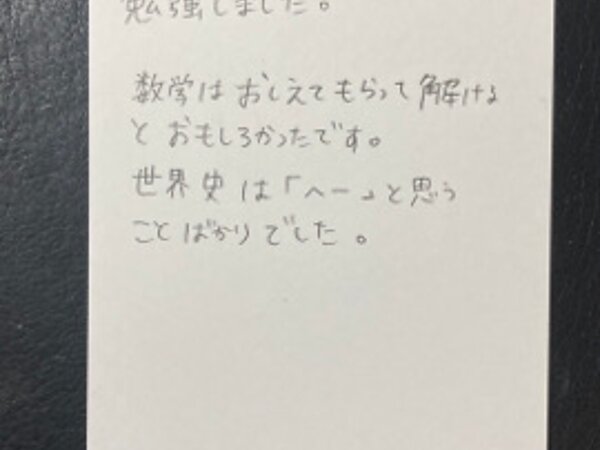 勉強しました。
数学はおしえてもらって解ける
とおもしろかったです。
世界史は「へー」と思う
ことばかりでした。